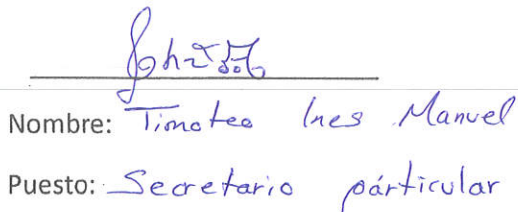 Nombre: Timoteo Ines Manuel
Puesto: Secretario particular